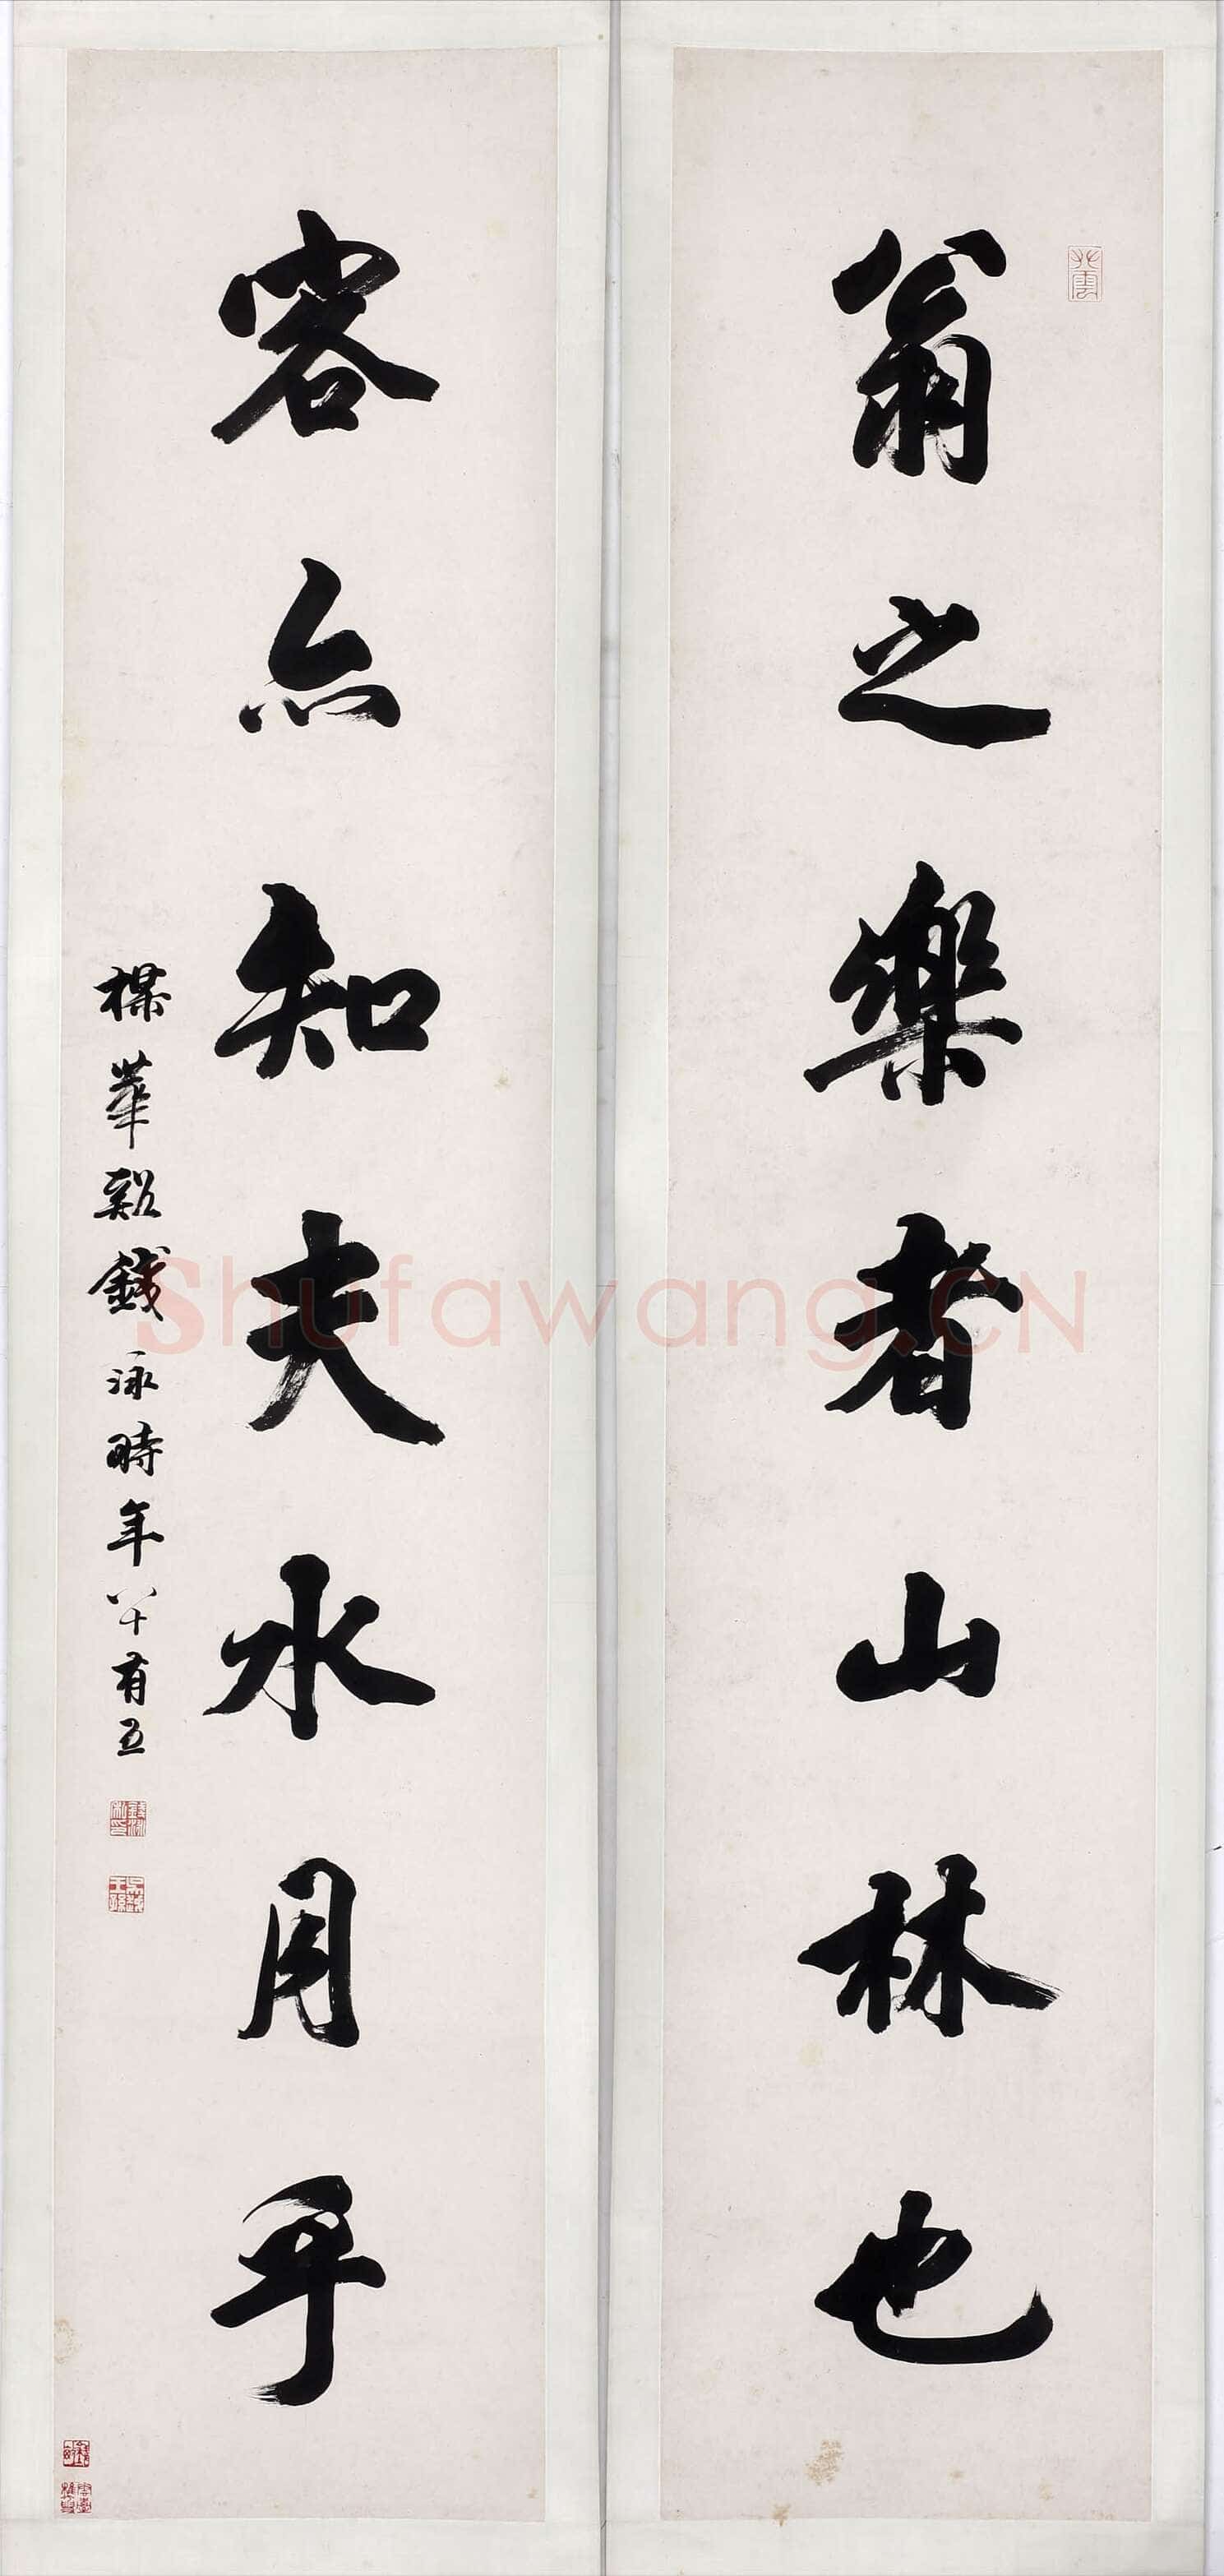 翁之樂者山林也
客亦知夫水月乎
楳華谿錢泳時年八十有五
Shufawang.CN